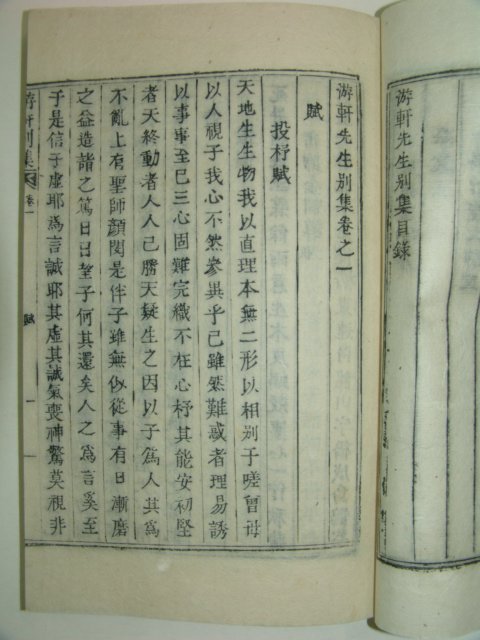 游軒先生別集目錄
游軒先生別集卷之一
賦
投杼賦
天地生生物我以直理本無二形以相別于嗟曾母
以人視子我心不然參異乎己雖然難惑者理易誘
以事事至已三心固難完織不在心杼其能安初堅
者天終動者人人己勝天疑生之因以子爲人其爲
不亂上有聖師顏閔是伴子雖無似從事有日漸磨
之益造諸之篤日日望子何其還矣人之爲言奚至
于是信于虛耶爲言誠耶其虛其誠氣喪神驚莫視非
游軒別集 卷一 賦 一